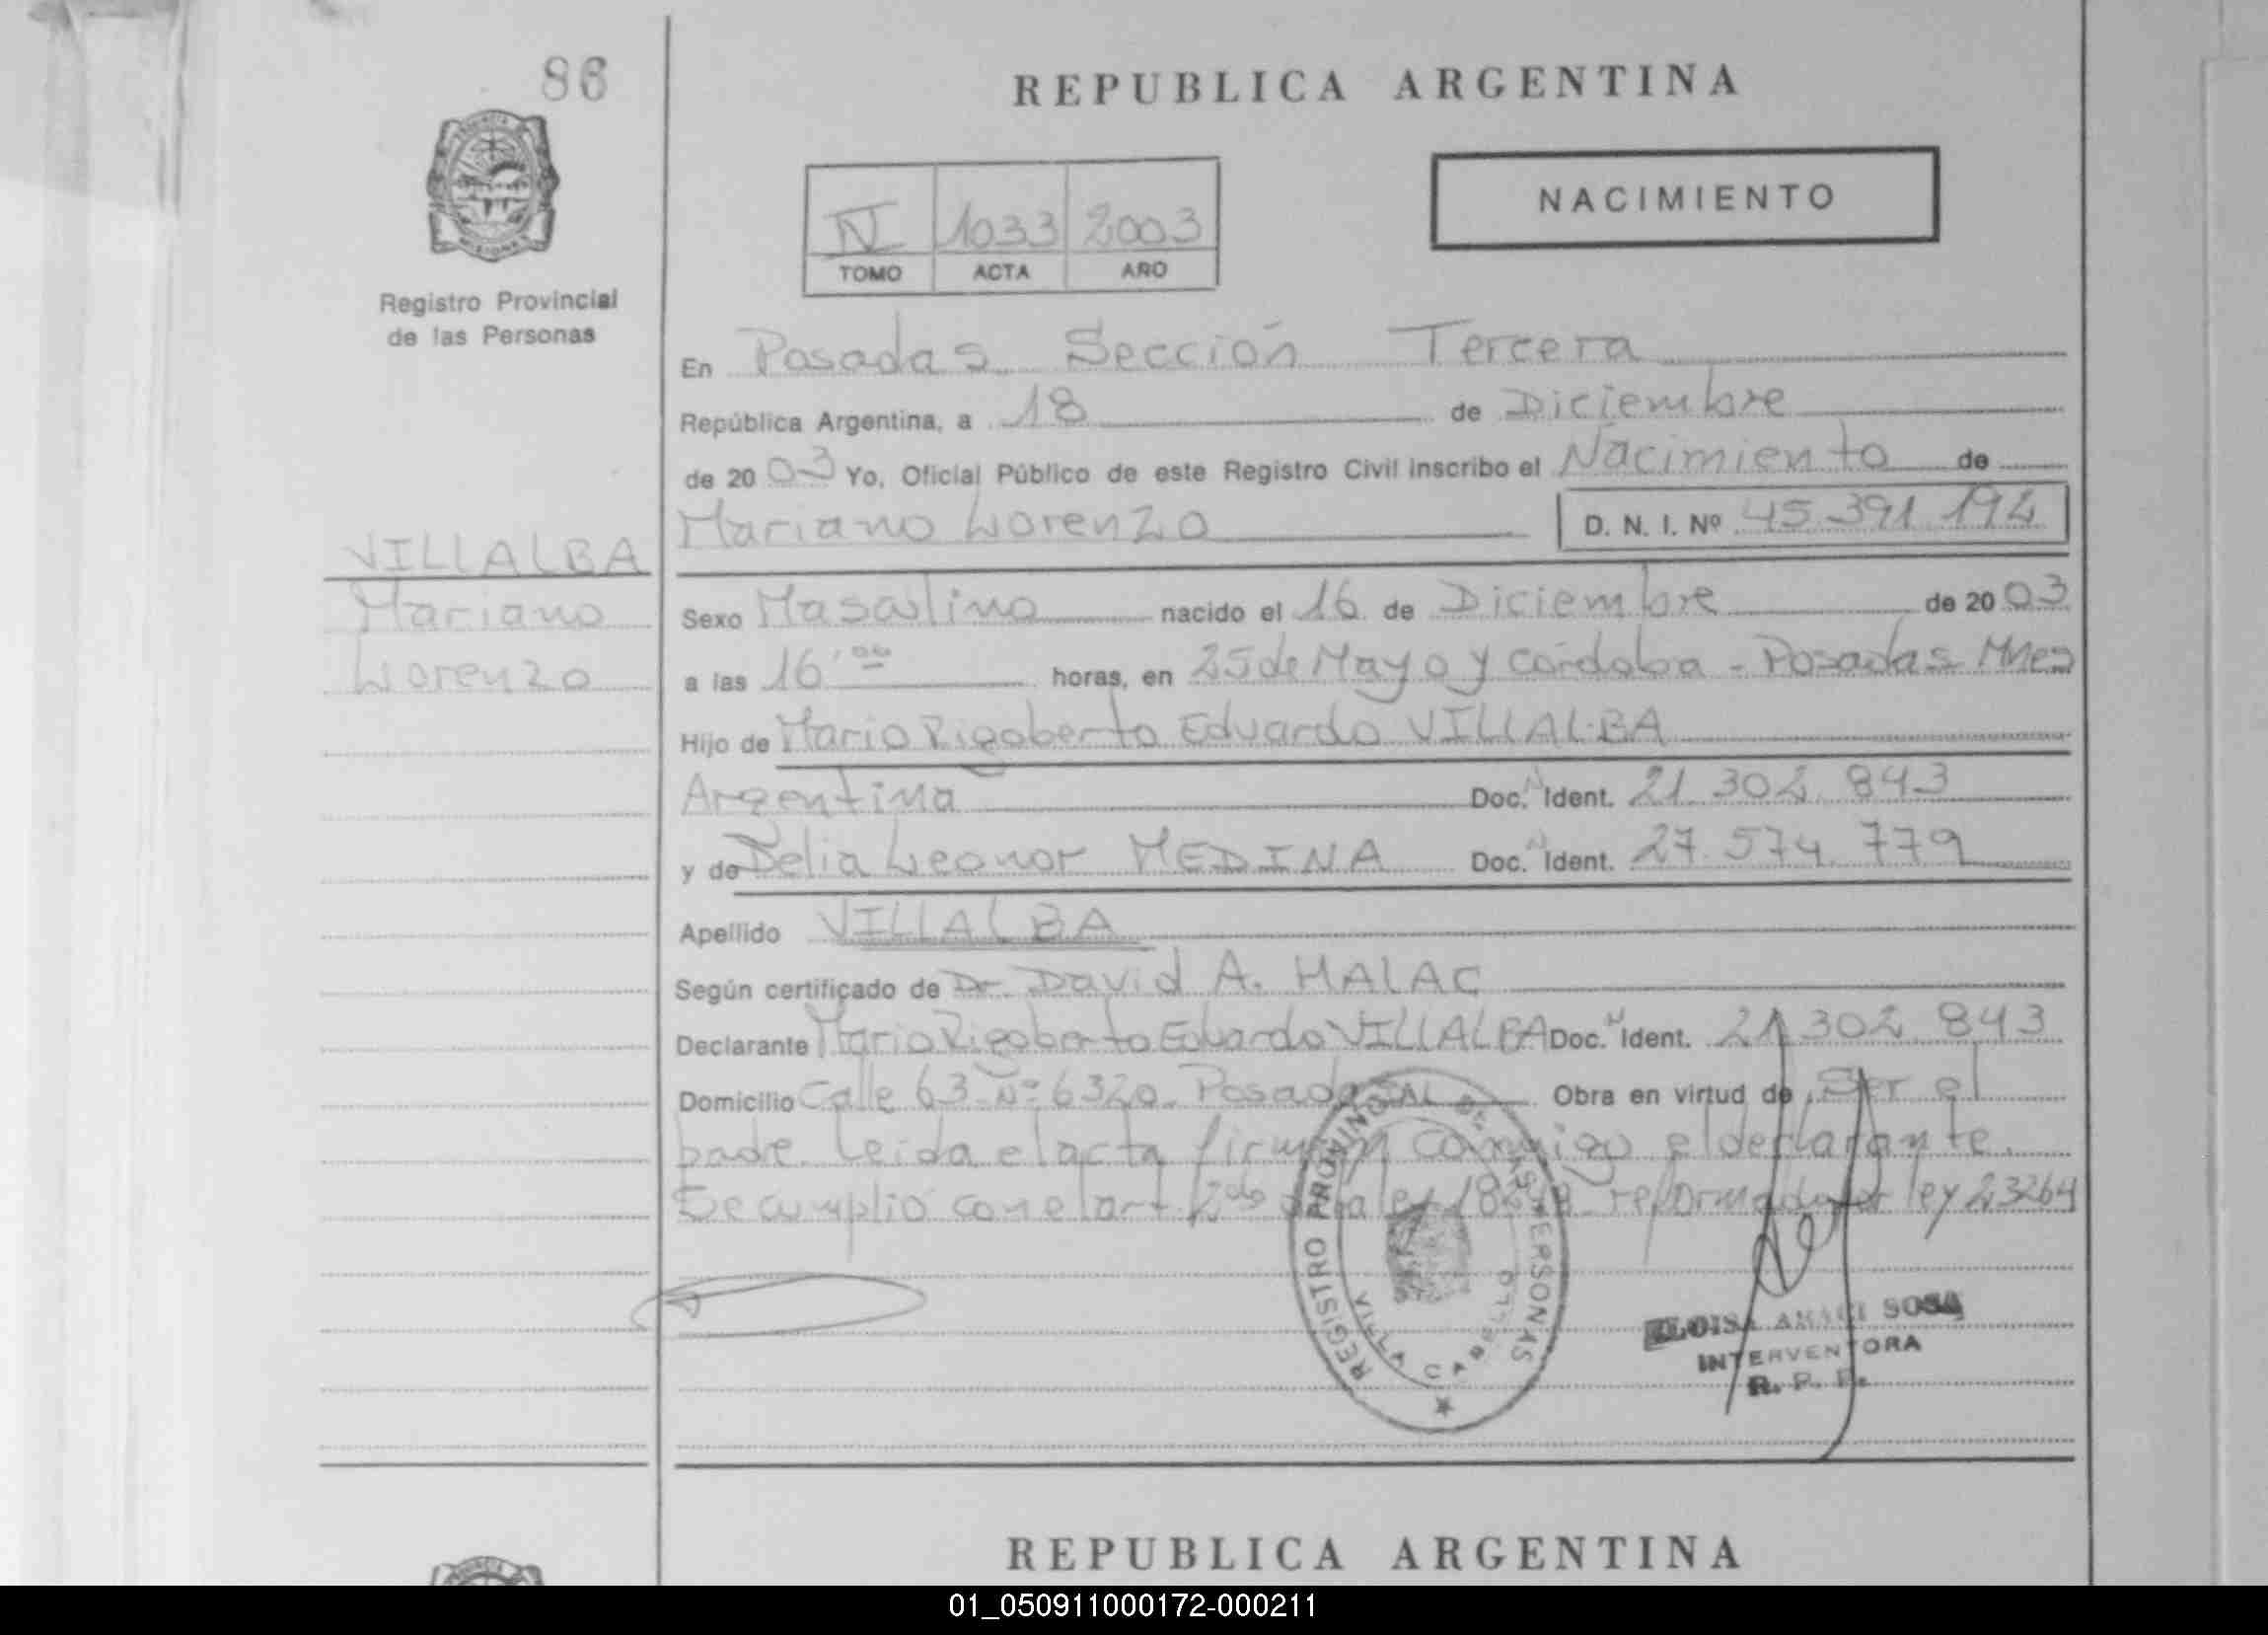 86
REPUBLICA ARGENTINA
NACIMIENTO
IV 1033 2003
TOMO ACTA AÑO
Registro Provincial
de las Personas
En Posadas Sección Tercera
República Argentina, a 18 de Diciembre
de 2003 Yo, Oficial Público de este Registro Civil inscribo el Nacimiento de
Mariano Lorenzo D. N. I. Nº 45.391.192
VILLALBA
Mariano
Lorenzo
Sexo Masculino nacido el 16 de Diciembre de 2003
a las 16,00 horas, en 25 de Mayo y Córdoba - Posadas Mnes
Hijo de Mario Rigoberto Eduardo VILLALBA
Argentina Doc. Ident. 21.302.843
y de Delia Leonor MEDINA Doc. Ident. 27.574.779
Apellido VILLALBA
Según certificado de Dr. David A. HALAC
Declarante Mario Rigoberto Eduardo VILLALBA Doc. Ident. 21.302.843
Domicilio Calle 63 Nº 6320 Posadas Obra en virtud de Ser el
padre. Leida el acta firman conmigo el declarante.
Se cumplió con el art 2do de la ley 18248 reformado por ley 23264
REGISTRO PROVINCIAL DE LAS PERSONAS
VILLA CABELLO
SOSA
INTERVENTORA
R. P. P.
REPUBLICA ARGENTINA
01_050911000172-000211